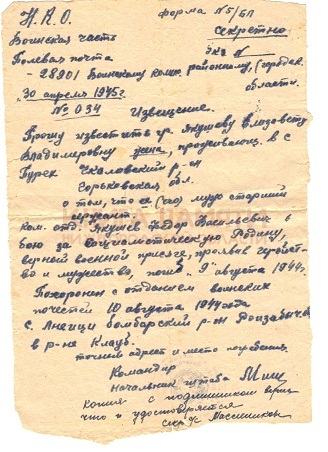 Н.К.О. форма №5/БП
Воинская часть секретно
Полевая почта экз №
28901 Воинскому комис. районному, (городск.
области.
30 апреля 1945г.
№ 034 Извещение.
Прошу известить гр. Якушеву Елизавету
Владимировну жена, проживающ. в с
Пурех Чкаловский р-он
Горьковская обл.
о том, что ее (его) муж старший
сержант
ком. отд. Якушев Федор Васильевич в
бою за социалистическую Родину,
верной военной присяге, проявив геройст-
во и мужество, погиб 9 августа 1944г.
Похоронен с отданием воинских
почестей 10 августа 1944 года
с.
в р-не
точный адрес и место погребения.
Командир
Начальник штаба
Копия с подлинником верна
что и удостоверяется